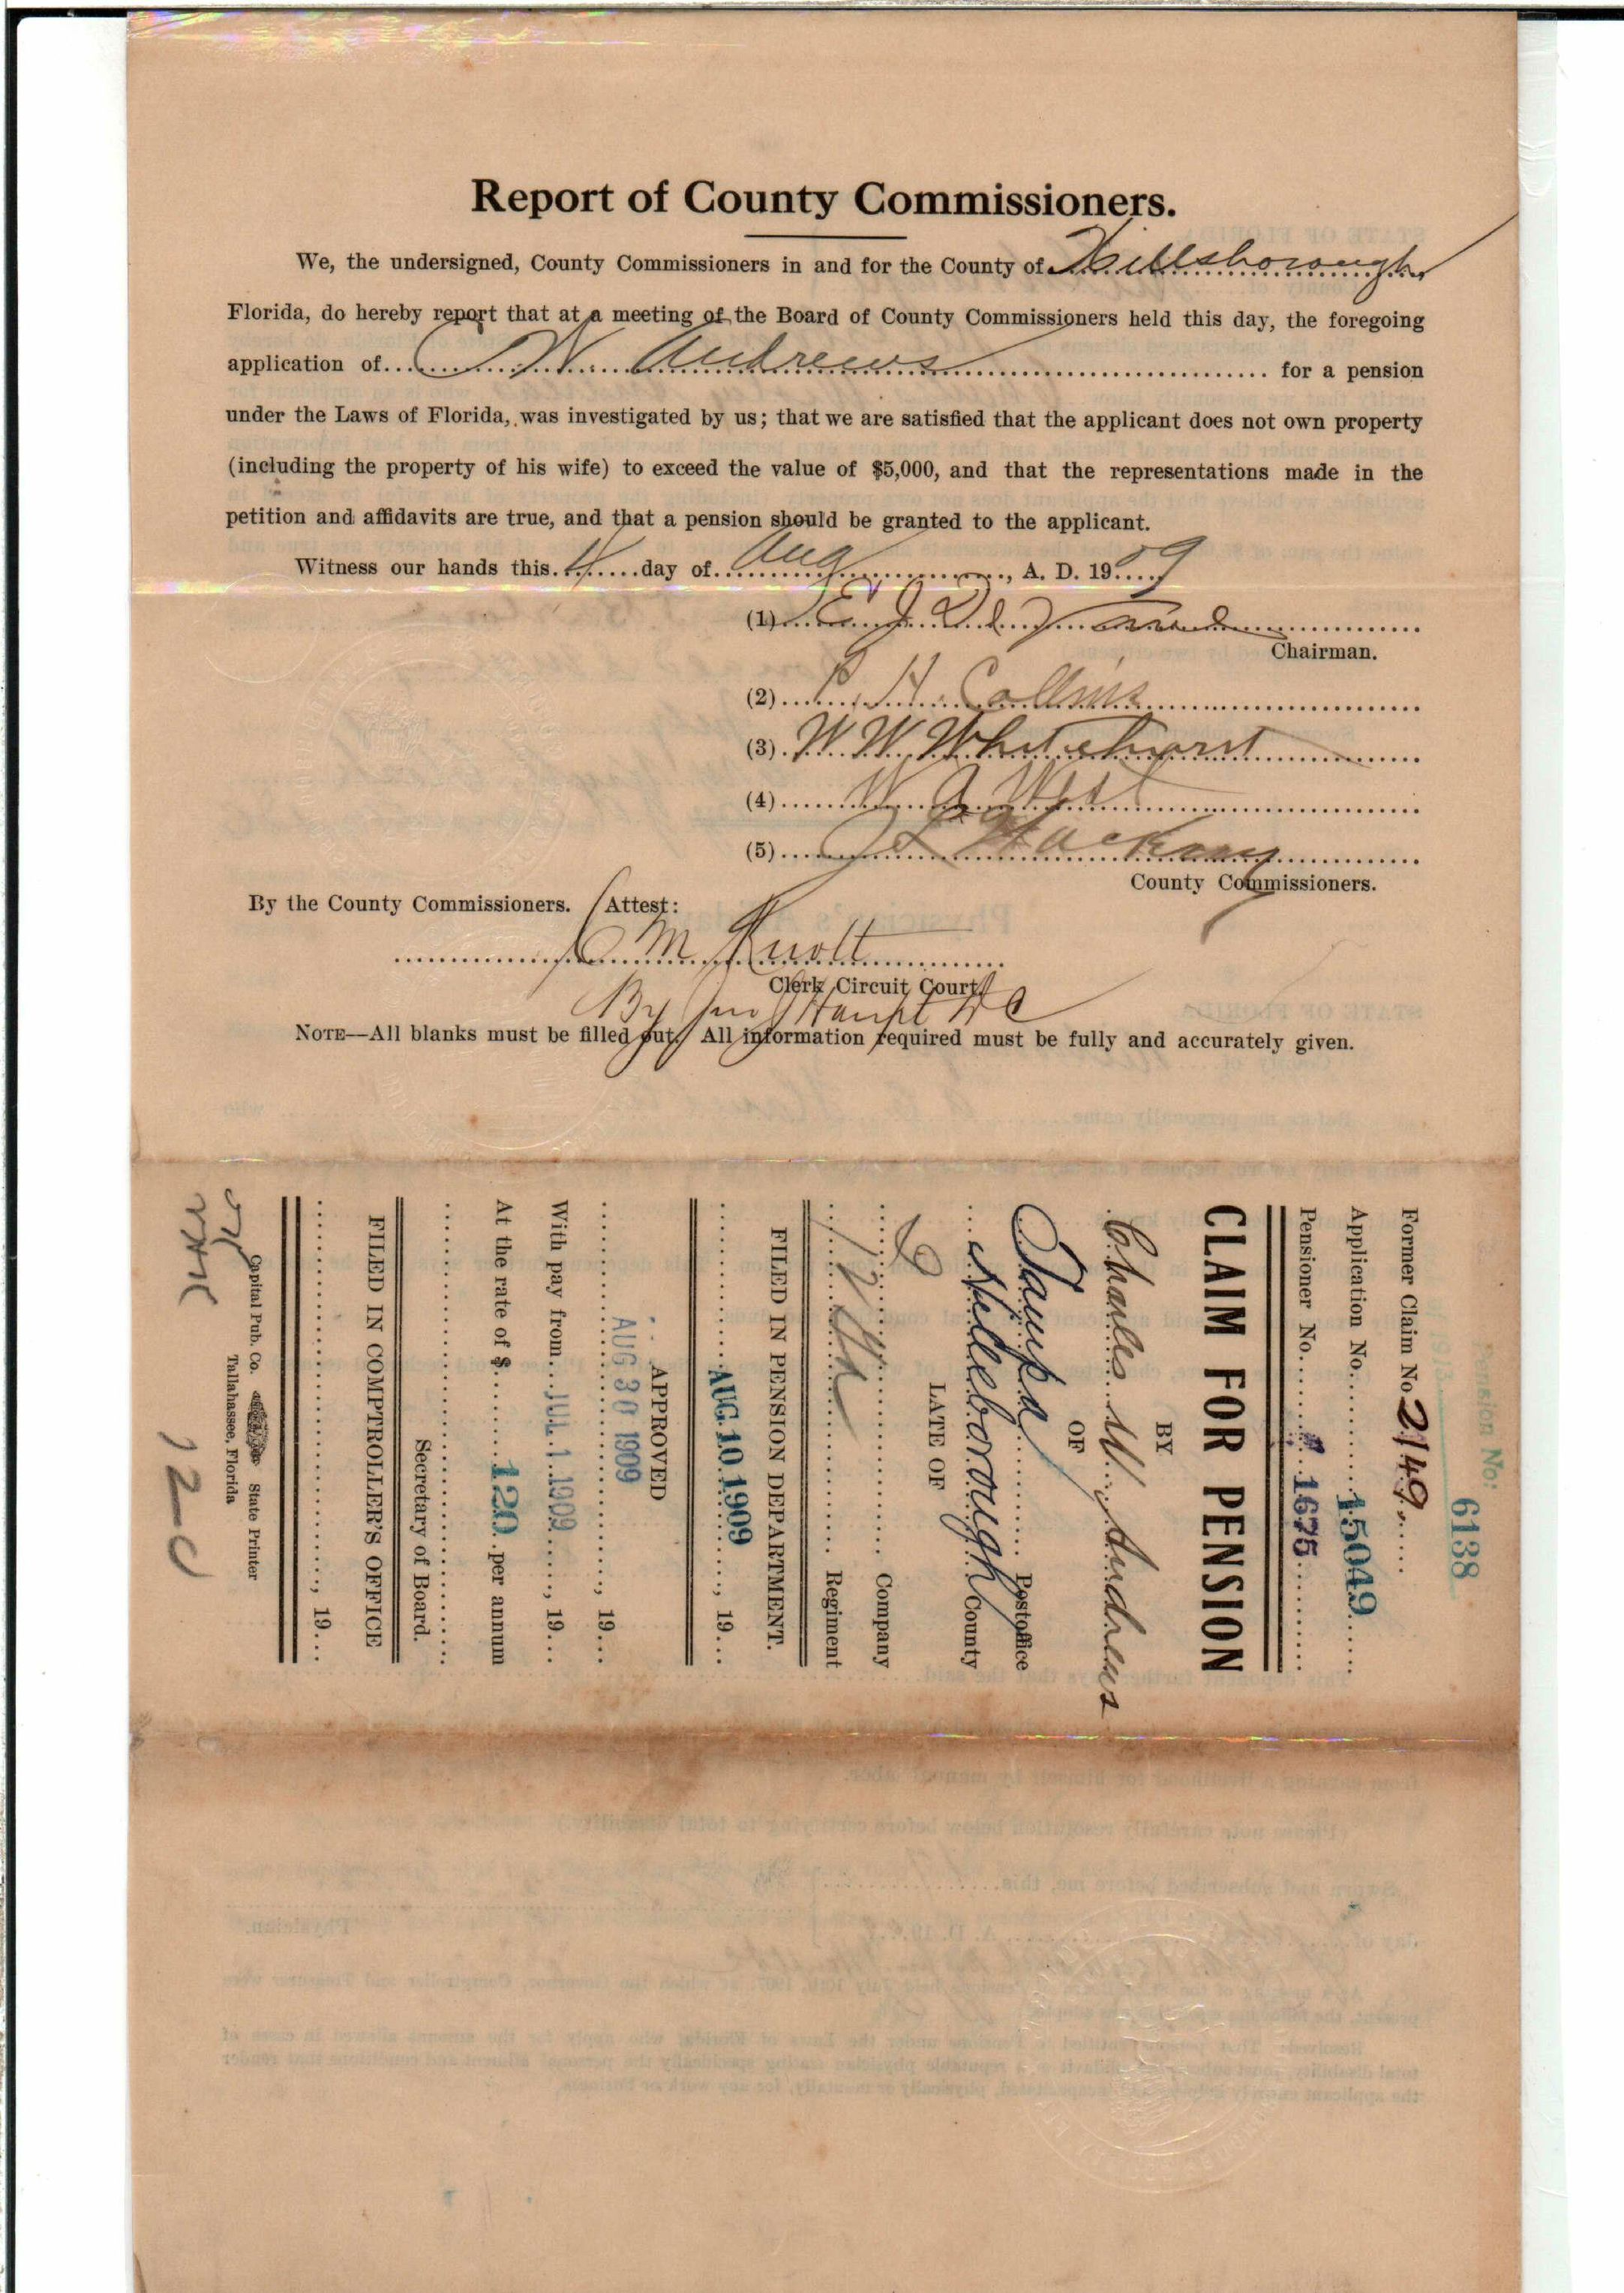 Report of County Commissioners.
We, the undersigned, County Commissioners in and for the County of Hillsborough,
Florida, do hereby report that at a meeting of the Board of County Commissioners held this day, the foregoing
application of C W. Andrews for a pension
under the Laws of Florida, was investigated by us; that we are satisfied that the applicant does not own property
(including the property of his wife) to exceed the value of $5,000, and that the representations made in the
petition and affidavits are true, and that a pension should be granted to the applicant.
Witness our hands this 4 day of Aug, A. D. 1909
(1)
Chairman.
(2) H. Collins
(3) W. W. Whitehurst
(4) W. A. West
(5)
County Commissioners.
By the County Commissioners. (Attest:
M. Knott
Clerk Circuit Court.
By Jno
NOTE—All blanks must be filled out. All information required must be fully and accurately given.
Pension No:
6138
Former Claim No. 2149
Application No. 15049
Pensioner No. 1675
CLAIM FOR PENSION
BY
Charles W. Andrews
OF
Tampa Postoffice
Hillsborough County
LATE OF
Company
Regiment
FILED IN PENSION DEPARTMENT.
AUG 10 1909, 19
APPROVED
AUG 30 1909, 19
With pay from JUL 1 1909, 19
At the rate of $ 120 per annum
Secretary of Board.
FILED IN COMPTROLLER'S OFFICE
, 19
Capital Pub. Co. State Printer
Tallahassee, Florida
120